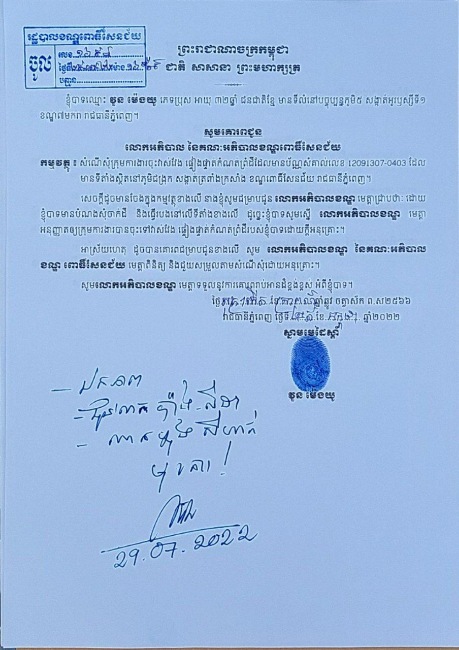 រដ្ឋបាលខណ្ឌពោធិ៍សែនជ័យ
ចូល
លេខ
ព្រះរាជាណាចក្រកម្ពុជា
ជាតិ សាសនា ព្រះមហាក្សត្រ
ខ្ញុំបាទឈ្មោះ ខួន ម៉េងយូ ភេទប្រុស អាយុ ៣២ឆ្នាំ ជនជាតិខ្មែរ មានទីលំនៅបច្ចុប្បន្នភូមិ៥ សង្កាត់អូរឫស្សីទី១
ខណ្ឌ៧មករា រាជធានីភ្នំពេញ។
សូមគោរពជូន
លោកអភិបាល នៃគណៈអភិបាលខណ្ឌពោធិ៍សែនជ័យ
កម្មវត្ថុ ៖ សំណើសុំក្រុមការងារចុះវាស់វែង ផ្ទៀងផ្ទាត់កំណត់ព្រំដីដែលមានប័ណ្ណសំគាល់លេខ 12091307-0403 ដែល
មានទីតាំងស្ថិតនៅភូមិជង្រុក សង្កាត់ត្រពាំងក្រសាំង ខណ្ឌពោធិ៍សែនជ័យ រាជធានីភ្នំពេញ។
សេចក្តីដូចមានចែងក្នុងកម្មវត្ថុខាងលើ នាងខ្ញុំសូមជម្រាបជូន លោកអភិបាលខណ្ឌ មេត្តាជ្រាបថា៖ ដោយ
ខ្ញុំបាទមានបំណងសុំចាក់ដី និងធ្វើរបងនៅលើទីតាំងខាងលើ ដូច្នេះខ្ញុំបាទសូមស្នើ លោកអភិបាលខណ្ឌ មេត្តា
អនុញ្ញាតឲ្យក្រុមការងារបានចុះទៅវាស់វែង ផ្ទៀងផ្ទាត់កំណត់ព្រំដីរបស់ខ្ញុំបាទដោយក្តីអនុគ្រោះ។
អាស្រ័យហេតុ ដូចបានគោរពជម្រាបជូនខាងលើ សូម លោកអភិបាលខណ្ឌ នៃគណៈអភិបាល
ខណ្ឌ ពោធិ៍សែនជ័យ មេត្តាពិនិត្យ និងជួយសម្រួលតាមសំណើសុំដោយអនុគ្រោះ។
សូមលោកអភិបាលខណ្ឌ មេត្តាទទួលនូវការគោរពរាប់អានដ៏ខ្ពង់ខ្ពស់ អំពីខ្ញុំបាទ។
ថ្ងៃ ឆ្នាំខាល ចត្វាស័ក ព.ស២៥៦៦
រាជធានីភ្នំពេញ ថ្ងៃទី ខែ ឆ្នាំ២០២២
ស្នាមមេដៃស្តាំ
ខួន ម៉េងយូ
29.07.2022